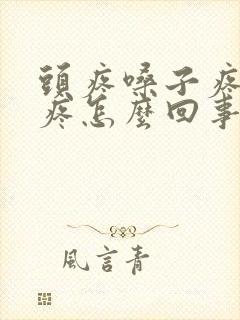 頭疼嗓子疼
疼怎麼回事
風言青